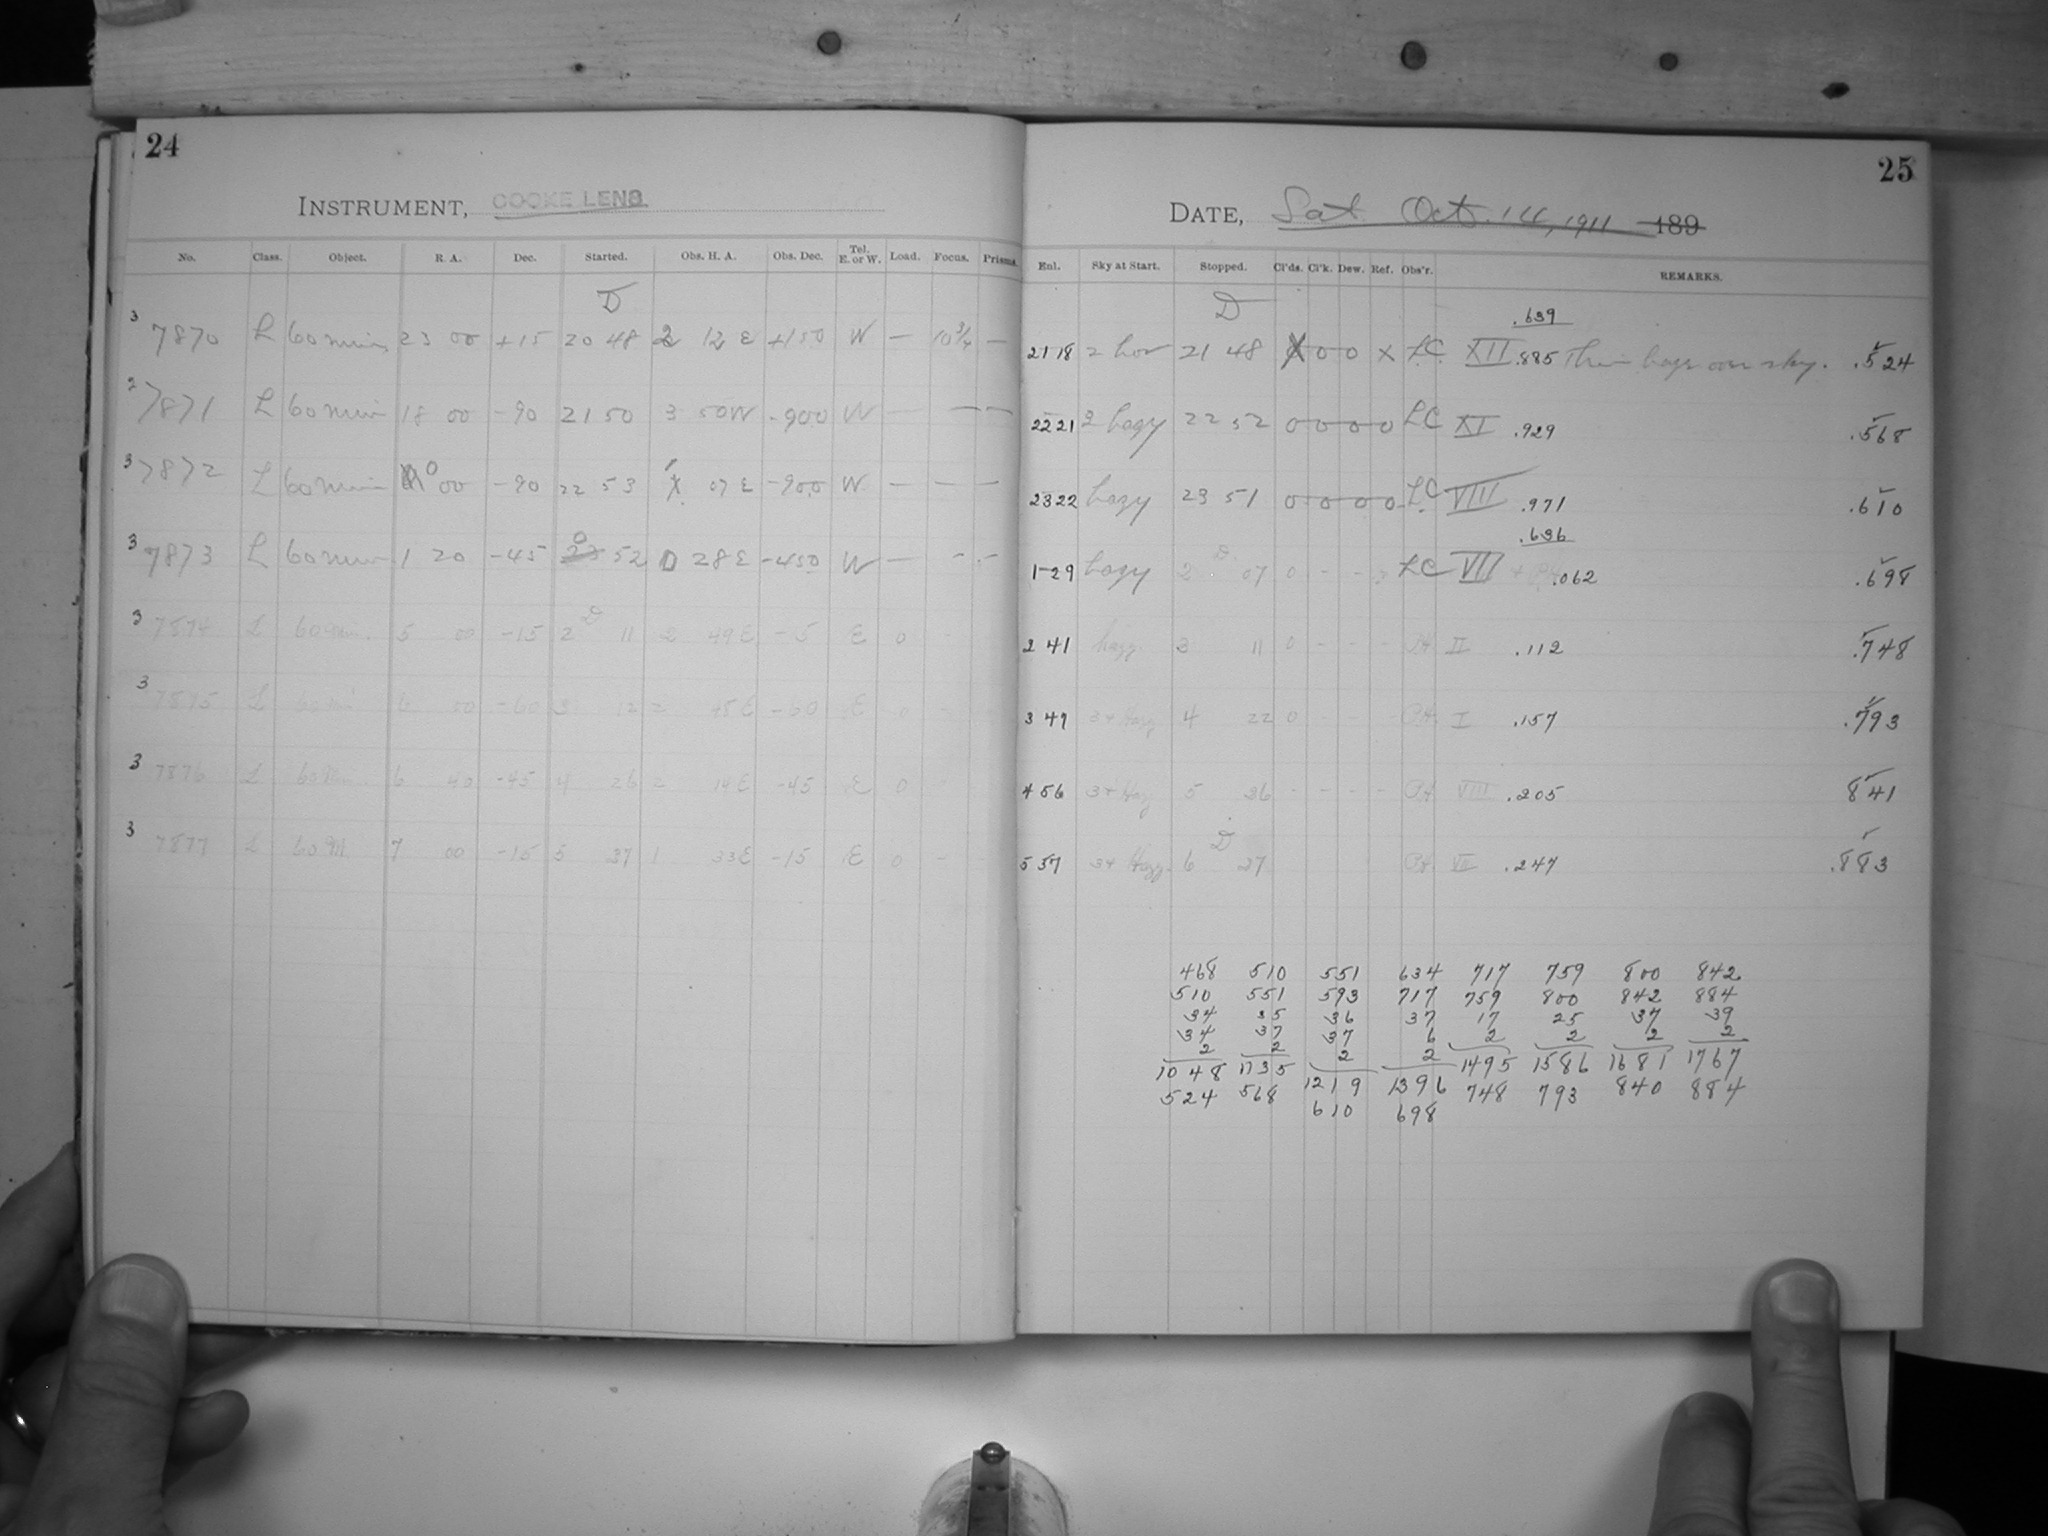 24
INSTRUMENT, COOKE LENS
No. Class. Object. R. A. Dec. Started. Obs. H. A. Obs. Dec. Tel. E. or W. Load. Focus. Prisms.
D
3 7870 L 60 min 23 00 +15 20 48 2 12 E +150 W — 10 3/4 —
2 7871 L 60 min 18 00 -90 21 50 3 50 W -900 W — — —
3 7872 L 60 min 0 00 -90 22 53 1 07 E -900 W — — —
3 7873 L 60 min 1 20 -45 0 52 0 28 E -450 W — - -
D
3 7874 L 60 min. 5 00 -15 2 11 2 49 E -5 E 0 -
3 7875 L 60 min 6 00 -60 3 22 2 45 E -60 E 0 -
3 7876 L 60 min. 6 40 -45 4 26 2 14 E -45 E 0 -
3 7877 L 60 M 7 00 -15 5 37 1 33 E -15 E 0 -
25
DATE, Sat Oct. 14, 1911 189
Enl. Sky at Start. Stopped. Cl'ds. Cl'k. Dew. Ref. Obs'r. REMARKS.
D .639
21 18 2 hor 21 48 X 0 0 X LC XII .885 Thin haze over sky. .524
22 21 2 hazy 22 52 0 0 0 0 LC XI .929 .568
23 22 hazy 23 51 0 0 0 0 LC VIII .971 .610
.636
1 29 hazy 2 D 07 0 - - LC VII .062 .698
2 41 hazy. 3 11 0 - - - II .112 .748
3 47 3+ Hazy 4 22 0 - - - I .157 .793
4 56 3+ Hazy 5 26 - - - - VIII .205 841
D
5 57 3+ Hazy. 6 37 VII .247 .883
468 510 551 634 717 759 800 842
510 551 593 717 759 800 842 884
34 35 36 37 17 25 37 39
34 37 37 6 2 2 2 2
2 2 2 2 1495 1586 1681 1767
1048 1135 1219 1396 748 793 840 884
524 568 610 698